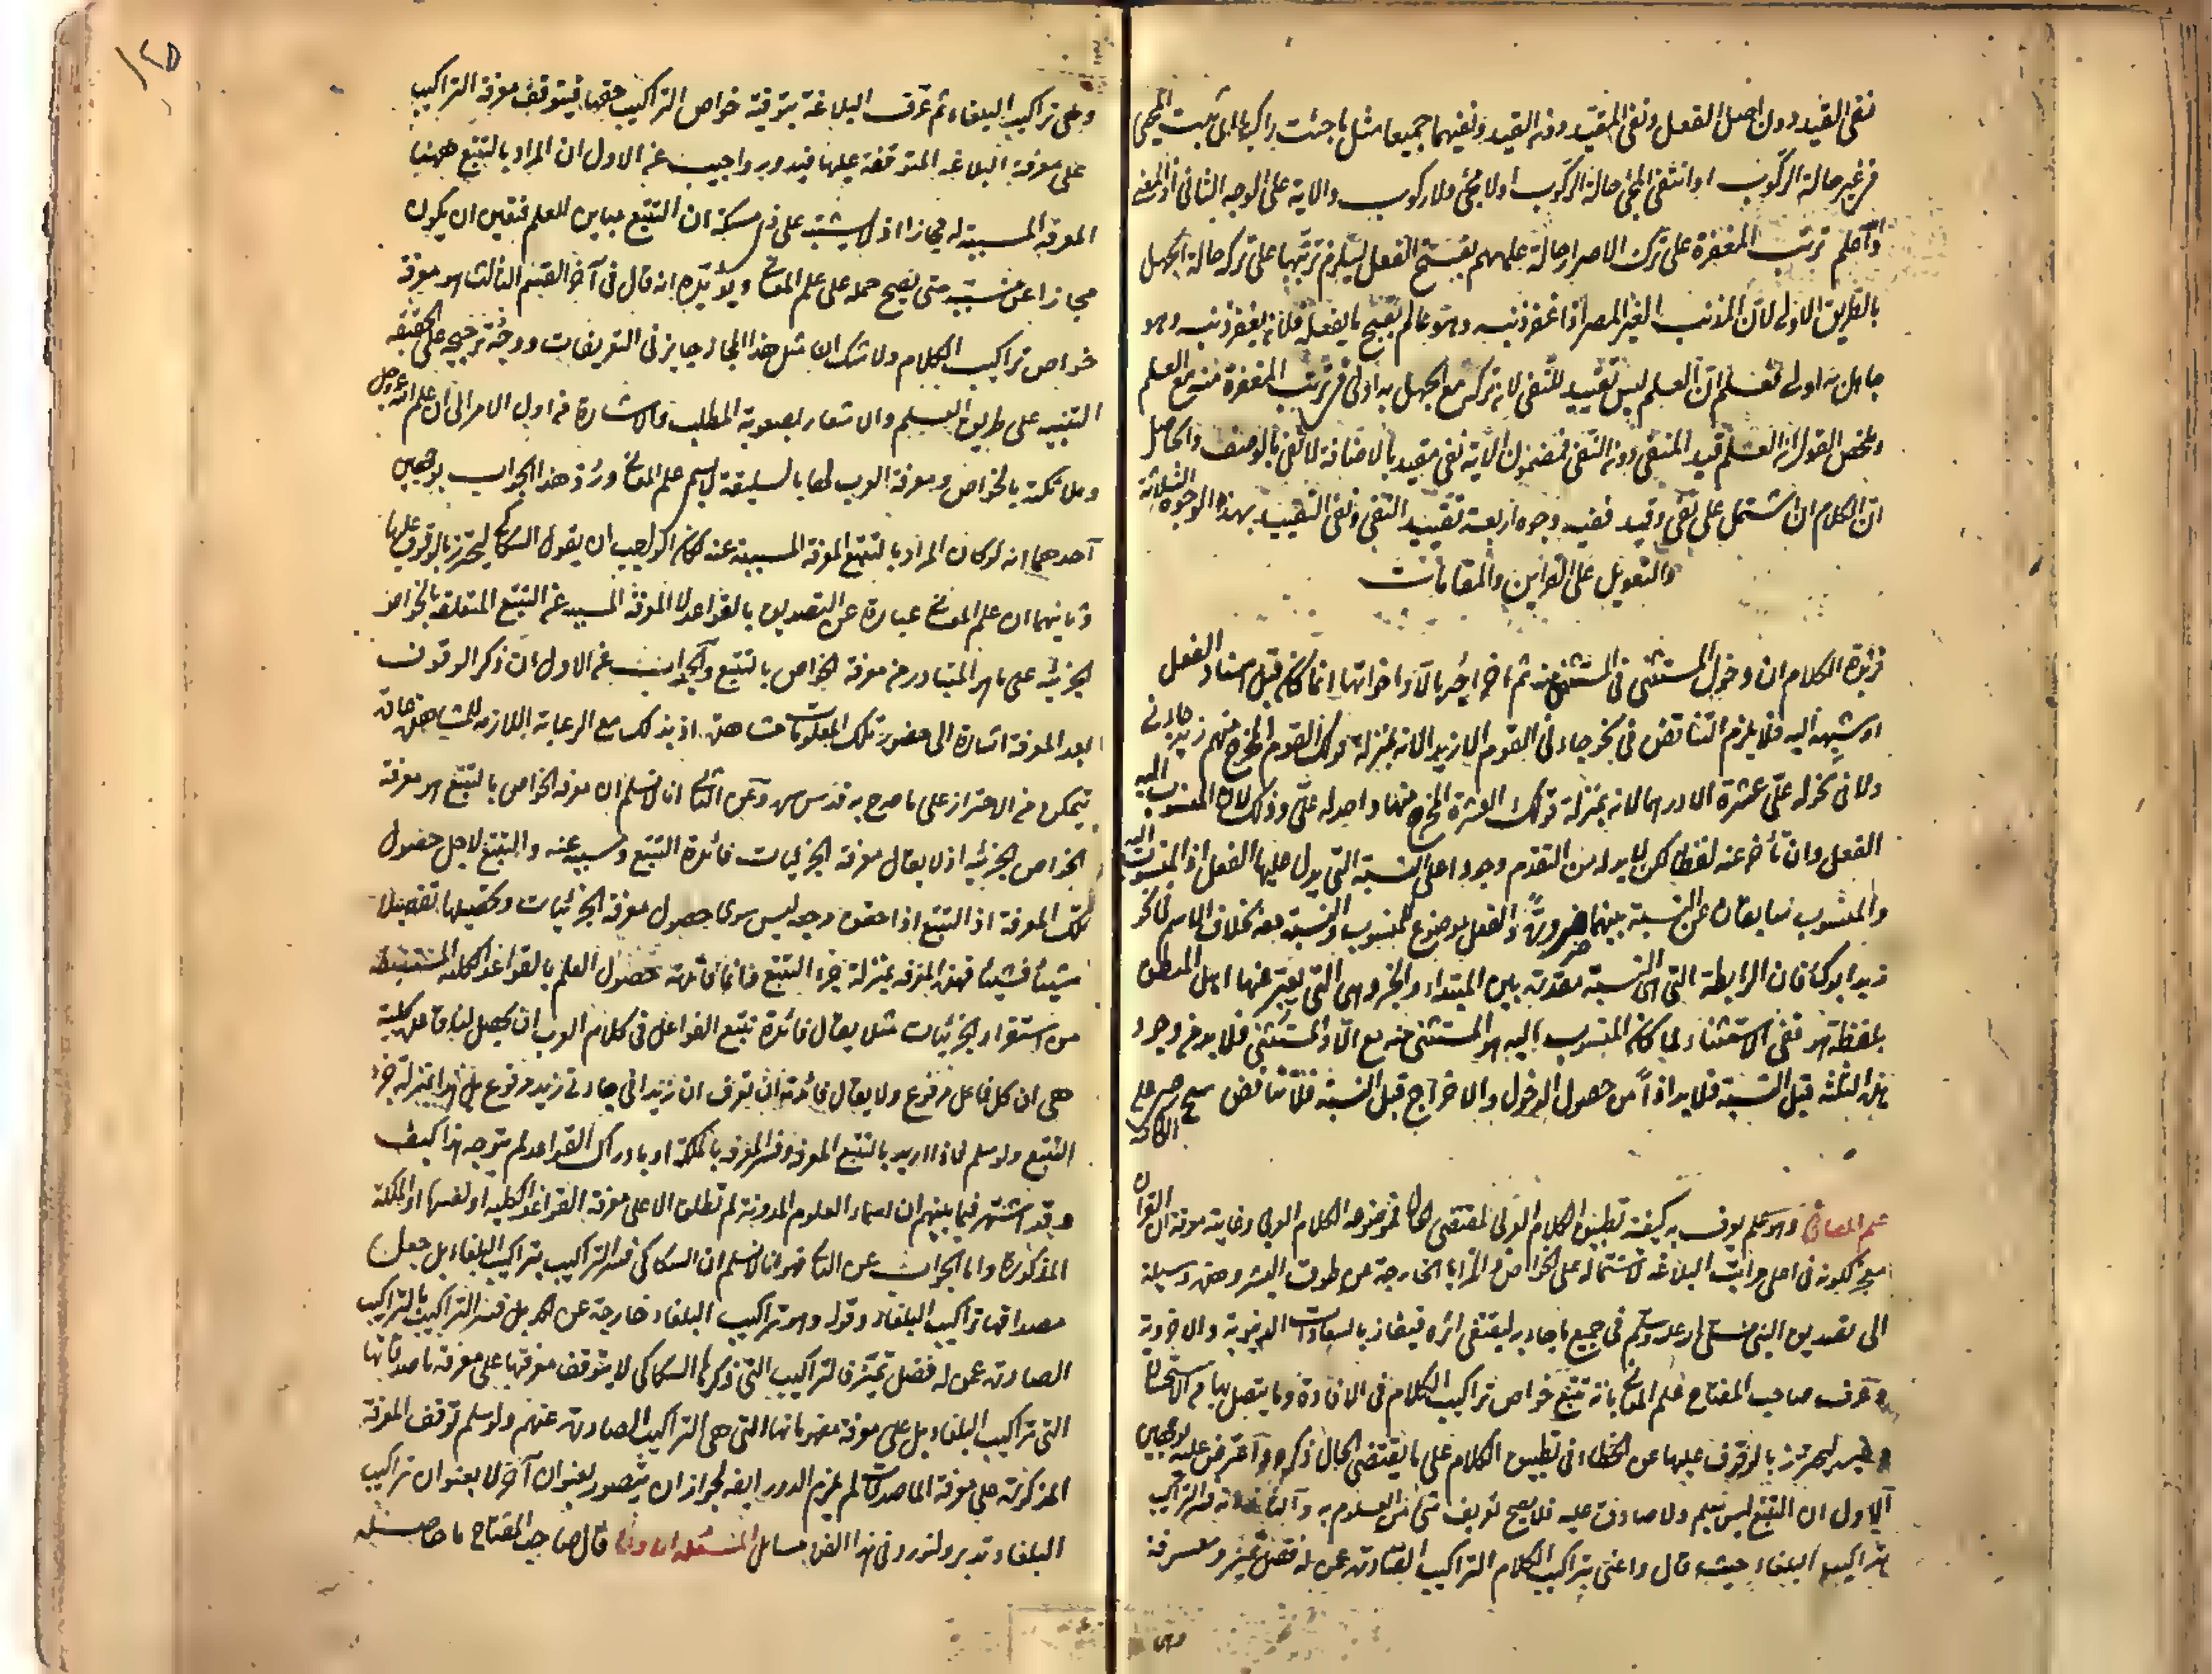 نفى القيد دون اصل الفعل ونفى المقيد دون القيد ونفيهما جميعا مثل ما جئت راكبا اى بل جئت
فى غير حالة الركوب او انتفى المجئ حالة الركوب اولا مجئ ولا ركوب والاية على الوجه الثانى اذ المعنى
واعلم ترتب المغفرة على ترك الاصرار حالة علمهم بقبح الفعل ليلزم ترتبها على تركه حالة الجهل
بالطريق الاولى لان المذنب الغير المصر اذا غفر ذنبه وهو عالم بقبح ما يفعله فلان يغفر ذنبه وهو
جاهل به اولى فعلم ان العلم ليس تقييد للنفى لان تركه مع الجهل به اولى فى ترتب المغفرة منه مع العلم
وملخص القول ان العلم قيد المنفى دون النفى فمضمون الاية نفى مقيد بالاضافة لا نفى بالوصف والحاصل
ان الكلام ان اشتمل على نفى وقيد ففيه وجوه اربعة تقييد النفى ونفى التقييد بهذه الوجوه الثلاثة
والتعويل على القراين والمقامات
الكلام ان دخول المستثنى فى المستثنى منه ثم اخراجه بالا واخواتها انما كان قبل اسناد الفعل
او شبهه اليه فلا يلزم التناقض فى نحو جاءنى القوم الا زيدا لانه بمنزلة قولك القوم المخرج منهم زيد جاءنى
ولا فى نحو له على عشرة الا درهما لانه بمنزلة قولك العشرة المخرج منها واحد له على وذلك لان المنسوب اليه
الفعل وان تأخر عنه لفظا لكن لا بد له من التقدم وجودا على النسبة التى يدل عليها الفعل اذ المنسوب اليه
والمنسوب سابقان على النسبة بينهما ضرورة والفعل موضوع للمنسوب والنسبة معه بخلاف الاسم فى نحو
زيد ابوك فان الرابطة التى هى النسبة مقدرة بين المبتداء والخبر وهى التى يعبر عنها اهل المنطق
بلفظة هو ففى الاستثناء لما كان المنسوب اليه هو المستثنى منه مع الا والمستثنى فلا بد من وجود
هذه الثلثة قبل النسبة فلا بد اذاً من حصول الدخول والاخراج قبل النسبة فلا تناقض
علم المعانى وهو علم يعرف به كيفية تطبيق الكلام العربى لمقتضى الحال فموضوعه الكلام العربى وغايته معرفة ان القرآن
معجز لكونه فى اعلى مراتب البلاغة لاشتماله على الخواص والمزايا الخارجة عن طوق البشر وهى وسيلة
الى تصديق النبى صلى الله عليه وسلم فى جميع ما جاء به ليقتفى اثره فيفاز بالسعادات الدنيوية والاخروية
وعرف صاحب المفتاح علم المعانى بانه تتبع خواص تراكيب الكلام فى الافادة وما يتصل بها من الاستحسان
وغيره ليحترز بالوقوف عليها عن الخطاء فى تطبيق الكلام على ما يقتضى الحال ذكره واعترض عليه بوجهين
الاول ان التتبع ليس بعلم ولا صادق عليه فلا يصح تعريف شئ من العلوم به والثانى انه فسر التراكيب
بتراكيب البلغاء حيث قال واعنى بتراكيب الكلام التراكيب الصادرة عن له فضل تميز ومعرفة
وهى
وهى تراكيب البلغاء ثم عرف البلاغة بتوفية خواص التراكيب حقها فيتوقف معرفة التراكيب
على معرفة البلاغة المتوقفة عليها فيدور واجيب عن الاول ان المراد بالتتبع ههنا
المعرفة المسببة له مجازا اذ لا يشتبه على ذى مسكة ان التتبع مباين للعلم فتعين ان يكون
مجازا عن مسببه حتى يصح حمله على علم المعانى ويؤيده انه قال فى آخر القسم الثالث هو معرفة
خواص تراكيب الكلام ولا شك ان مثل هذا المجاز جايز فى التعريفات ووجه ترجيحه على الحقيقة
التنبيه على طريق العلم والاشعار بصعوبة المطلب والاشارة من اول الامر الى ان علم الله عز وجل
وملائكته بالخواص ومعرفة العرب لها بالسليقة لا يسمى علم المعانى ورد هذا الجواب بوجهين
احدهما انه لو كان المراد بالتتبع المعرفة المسببة عنه لكان الواجب ان يقول السكاكى ليحترز بالوقوف عليها
وثانيهما ان علم المعانى عبارة عن التصديق بالقواعد لا المعرفة المسببة عن التتبع المتعلقة بالخواص
الجزئية على ما هو المتبادر من معرفة الخواص بالتتبع والجواب عن الاول ان ذكر الوقوف
بعد المعرفة اشارة الى حضور تلك المعلومات مشاهدة اذ بذلك مع الرعاية اللازمة للمشاهدة
يتمكن من الاحتراز على ما صرح به قدس سره وعن الثانى انا لا نسلم ان معرفة الخواص بالتتبع هو معرفة
الخواص الجزئية اذ لا يقال معرفة الجزئيات فائدة التتبع ومسببة عنه والتتبع لاجل حصول
تلك المعرفة اذ التتبع اذا حقق وجه ليس سوى حصول معرفة الجزئيات وتحصيلها تفصيلا
شيئا فشيئا فهذه المعرفة بمنزلة جزء التتبع وانما فائدته حصول العلم بالقواعد الكلية المستنبطة
من استقراء الجزئيات مثلا يقال فائدة تتبع الفواعل فى كلام العرب ان يحصل لنا قاعدة كلية
هى ان كل فاعل مرفوع ولا يقال فائدته ان تعرف ان زيدا فى جاءنى زيد مرفوع بل هذا بمنزلة جزء
التتبع ولو سلم فاذا اريد بالتتبع المعرفة وفسر المعرفة بالملكة او بادراك القواعد لم يتوجه هذا كيف
وقد اشتهر فيما بينهم ان اسماء العلوم المدونة لم تطلق الا على معرفة القواعد الكلية او نفسها او الملكة
المذكورة واما الجواب عن الثانى فهو انا لا نسلم ان السكاكى فسر التراكيب بتراكيب البلغاء بل جعل
مصداقها تراكيب البلغاء وقوله وهو تراكيب البلغاء خارجة عن الحد بل فسر التراكيب بالتراكيب
الصادرة عمن له فضل تميز فالتراكيب التى ذكرها السكاكى لا يتوقف معرفتها على معرفة ما صدقاتها
التى تراكيب البلغاء بل على معرفة مفهوماتها التى هى التراكيب الصادرة عنهم ولو سلم توقف المعرفة
المذكورة على معرفة الماصدقات لم يلزم الدور ايضا لجواز ان يتصور بعنوان آخر لا بعنوان تراكيب
البلغاء تدبر ولنورد فى هذا الفن مسائل قال صاحب المفتاح ما حاصله